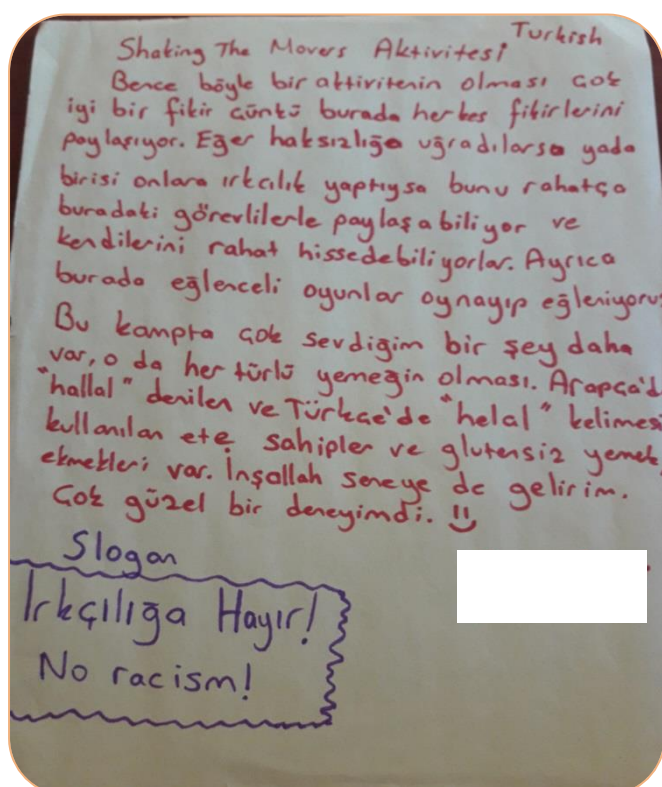 Turkish
Shaking The Movers Aktivitesi
Bence böyle bir aktivitenin olması çok
iyi bir fikir çünkü burada herkes fikirlerini
paylaşıyor. Eğer haksızlığa uğradılarsa yada
birisi onlara ırkçılık yaptıysa bunu rahatça
buradaki görevlilerle paylaşabiliyor ve
kendilerini rahat hissedebiliyorlar. Ayrıca
burada eğlenceli oyunlar oynayıp eğleniyoruz
Bu kampta çok sevdiğim bir şey daha
var, o da her türlü yemeğin olması. Arapça'd
"hallal" denilen ve Türkçe'de "helal" kelimes
kullanılan ete sahipler ve glutensiz yemek,
ekmekleri var. İnşallah seneye de gelirim.
Çok güzel bir deneyimdi. !!
Slogan
Irkçılığa Hayır!
No racism!